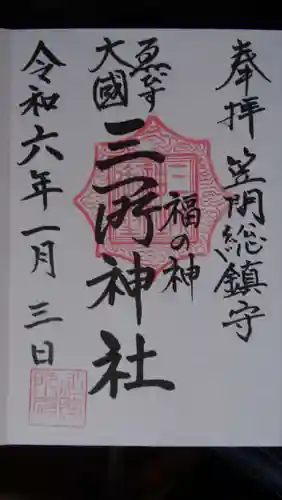 奉拝 笠間総鎮守
福の神
ゑびす
大國
三所神社
令和六年一月三日